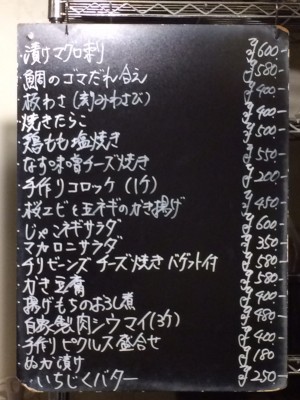 ・漬けマグロ刺 ¥600-
・鯛のゴマだれ合え ¥580-
・板わさ(刻みわさび) ¥400-
・焼きたらこ ¥400-
・鶏もも塩焼き ¥500-
・なす味噌チーズ焼き ¥550-
・手作りコロッケ(1ケ) ¥200-
・桜エビと玉ネギのかき揚げ ¥450-
・じゃこネギサラダ ¥600-
・マカロニサラダ ¥350-
・チリビーンズ チーズ焼き バゲット付 ¥580-
・かき豆腐 ¥580-
・揚げもちのおろし煮 ¥400-
・自家製肉シウマイ(3ケ) ¥480-
・手作りピクルス盛合せ ¥400-
・ぬか漬け ¥180-
・いちじくバター ¥250-